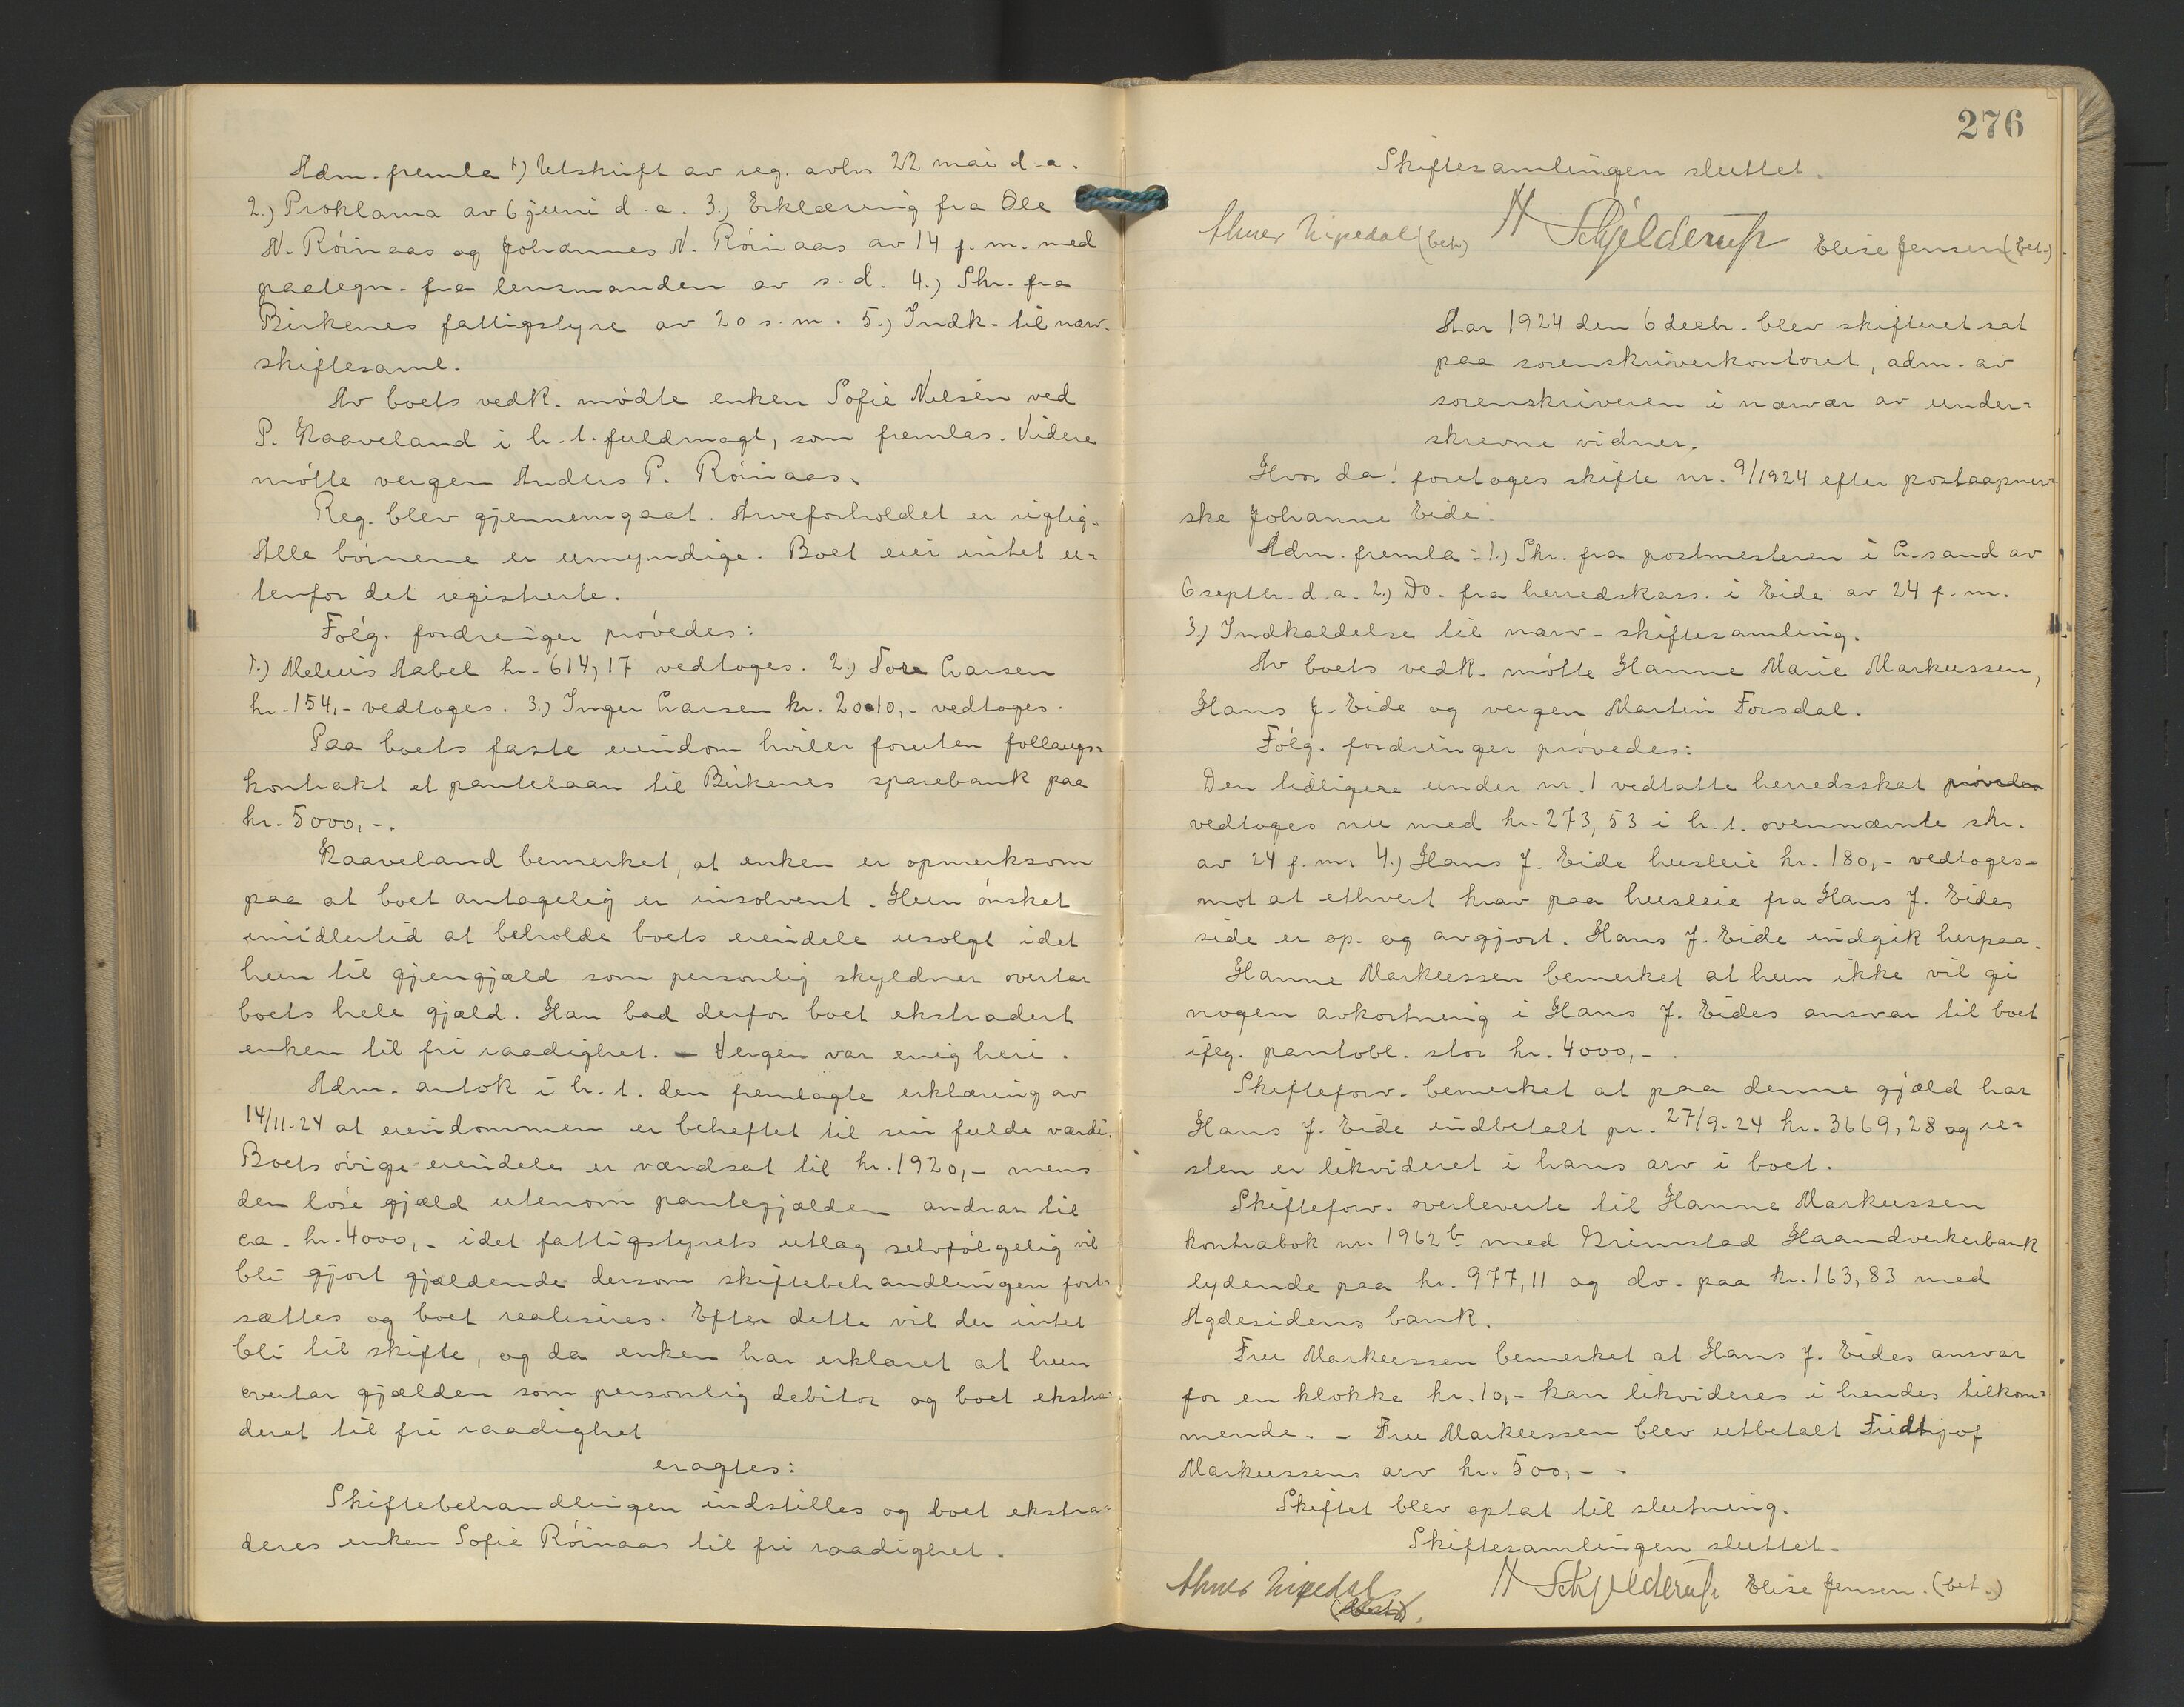 Adm. fremla 1) Utskrift av reg. avh. 22 mai d.a.
2.) Proklama av 6 juni d.a. 3.) Erklæring fra Ole
N. Röinaas og Johannes N. Röinaas av 14 f.m. med
paategn. fra lensmanden av s.d. 4.) Skr. fra
Birkenes fattigstyre av 20 s.m. 5.) Indk. til nærv.
skiftesaml.
Av boets vedk. mödte enken Sofie Nelsen ved
P. Kaaveland i h.t. fuldmagt, som fremlas. Videre
mötte vergen Anders P. Röinaas.
Reg. blev gjennemgaat. Arveforholdet er rigtig.
Alle börnene er umyndige. Boet eier intet u-
tenfor det registrerte.
Fölg. fordringer prövedes:
1.) Melvis Aabel kr. 614,17 vedtoges. 2.) Tore Larsen
kr. 154,- vedtoges. 3.) Inger Larsen kr. 2010,- vedtoges.
Paa boets faste eiendom hviler foruten follaugs-
kontrakt et pantelaan til Birkenes sparebank paa
kr. 5000,-.
Kaaveland bemerket, at enken er opmerksom
paa at boet antagelig er insolvent. Hun önsket
imidlertid at beholde boets eiendele usolgt idet
hun til gjengjæld som personlig skyldner overtar
boets hele gjæld. Han bad derfor boet ekstradert
enken til fri raadighet. - Vergen var enig heri.
Adm. antok i h.t. den fremlagte erklæring av
14/11-24 at eiendommen er beheftet til sin fulde værdi.
Boets övrige eiendele er værdsat til kr. 1920,- mens
den löse gjæld utenom pantegjælden andrar til
ca. kr. 4000,- idet fattigstyrets utlag selvfölgelig vil
bli gjort gjældende dersom skiftebehandlingen fort-
sættes og boet realiseres. Efter dette vil der intet
bli til skifte, og da enken har erklæret at hun
overtar gjælden som personlig debitor og boet ekstra-
deret til fri raadighet
eragtes:
Skiftebehandlingen indstilles og boet ekstra-
deres enken Sofie Röinaas til fri raadighet.
276
Skiftesamlingen sluttet.
Nipedal (bet.) H Schjelderup Elise Jensen (bet.)
Aar 1924 den 6 decbr. blev skifteret sat
paa sorenskriverkontoret, adm. av
sorenskriveren i nærvær av under-
skrevne vidner.
Hvor da! foretoges skifte nr. 9/1924 efter postaapner-
ske Johanne Eide.
Adm. fremla: 1.) Skr. fra postmesteren i L.sand av
6 septbr. d.a. 2.) Do. fra herredskass. i Eide av 24 f.m.
3.) Indkaldelse til nærv. skiftesamling.
Av boets vedk. mötte Hanne Marie Markussen,
Hans J. Eide og vergen Martin Forsdal.
Fölg. fordringer prövedes:
Den tidligere under nr. 1 vedtatte herredsskat prövedes
vedtoges nu med kr. 273,53 i h.t. ovennævnte skr.
av 24 f.m. 4.) Hans J. Eide husleie kr. 180,- vedtoges -
mot at ethvert krav paa husleie fra Hans J. Eides
side er op- og avgjort. Hans J. Eide indgik herpaa.
Hanne Markussen bemerket at hun ikke vil gi
nogen avkortning i Hans J. Eides ansvar til boet
ifög. pantobl. stor kr. 4000,-.
Skifteforv. bemerket at paa denne gjæld har
Hans J. Eide indbetalt pr. 27/9-24 kr. 3669,28 og re-
sten er likvideret i hans arv i boet.
Skifteforv. overleverte til Hanne Markussen
kontrabok nr. 1962 b med Grimstad Haandverkerbank
lydende paa kr. 977,11 og do. paa kr. 163,83 med
Agdesidens bank.
Fru Markussen bemerket at Hans J. Eides ansvar
for en klokke kr. 10,- kan likvideres i hendes tilkom-
mende. - Fru Markussen blev utbetalt Fridtjof
Markussens arv kr. 500,- -
Skiftet blev optat til slutning.
Skiftesamlingen sluttet.
Nipedal H Schjelderup Elise Jensen. (bet.)